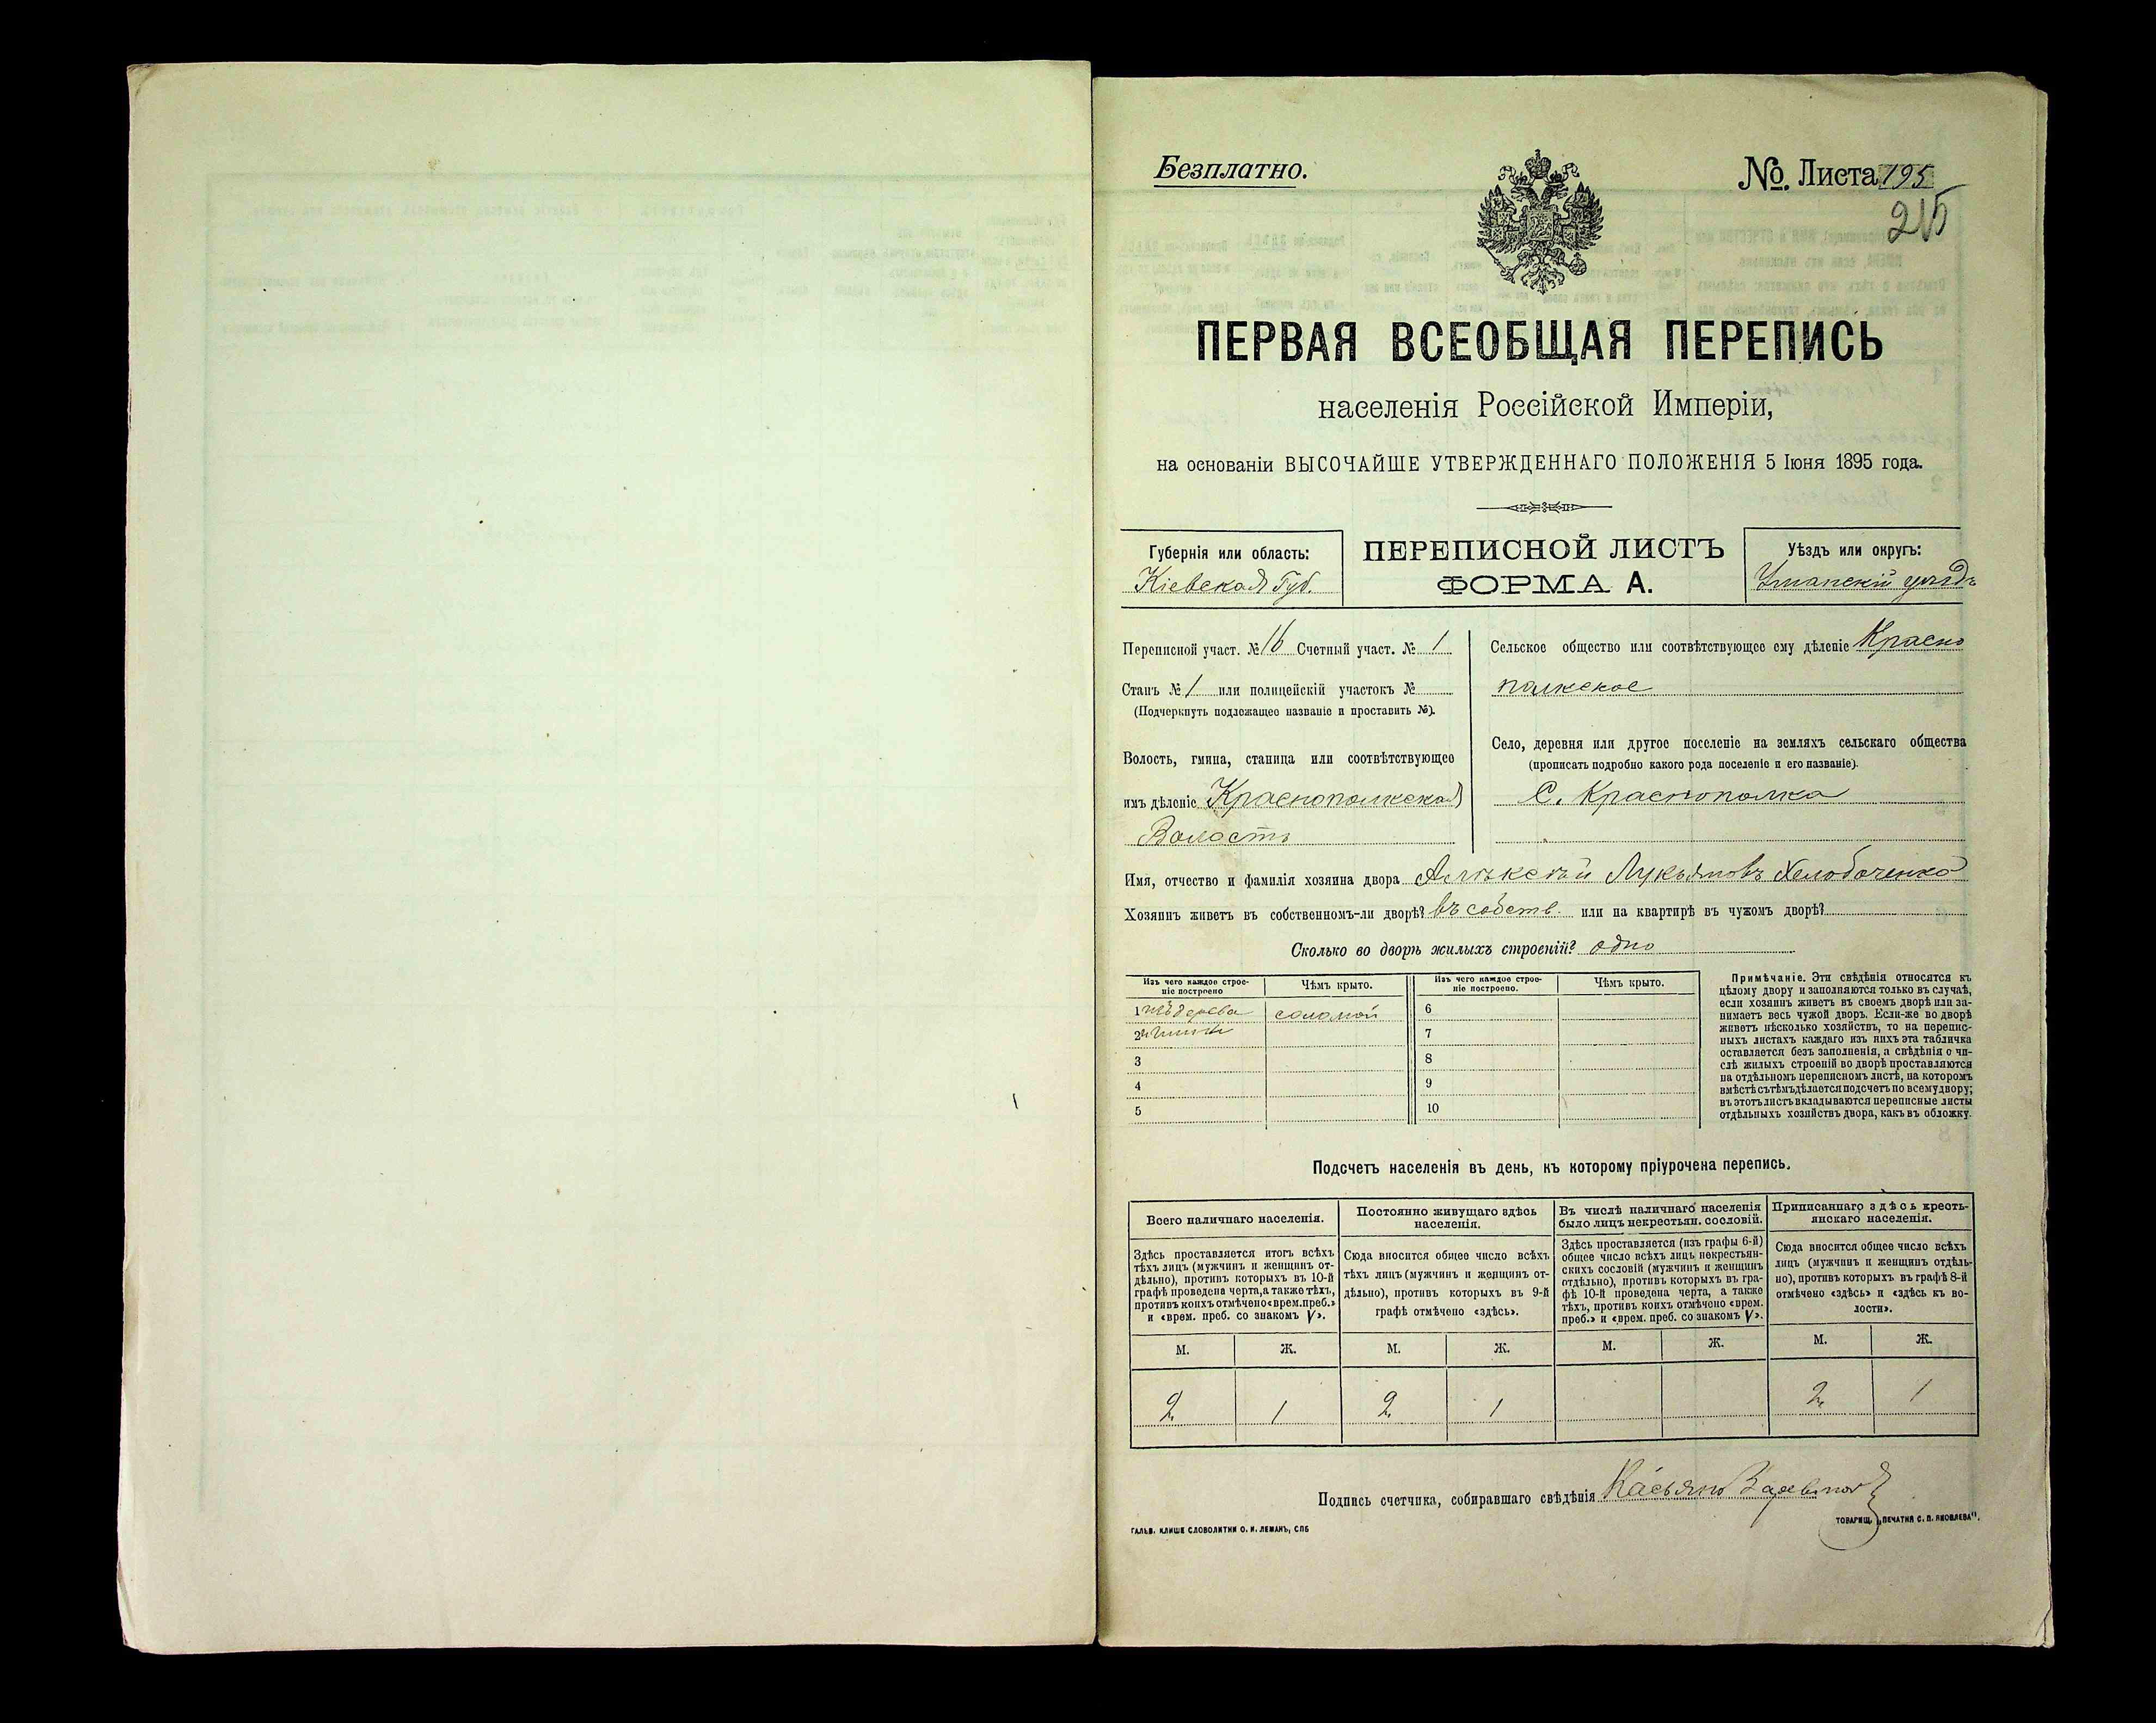 Безплатно.
№. Листа 195
215
ПЕРВАЯ ВСЕОБЩАЯ ПЕРЕПИСЬ
населенія Россійской Имперіи,
на основаніи ВЫСОЧАЙШЕ УТВЕРЖДЕННАГО ПОЛОЖЕНІЯ 5 Іюня 1895 года.
Губернія или область:
Кіевская Губ.
ПЕРЕПИСНОЙ ЛИСТЪ
ФОРМА А.
Уѣздъ или округъ:
Уманскій уѣздъ
Переписной участ. № 16 Счетный участ. № 1
Станъ № 1 или полицейскій участокъ №
(Подчеркнуть подлежащее названіе и проставить №).
Волость, гмина, станица или соотвѣтствующее
имъ дѣленіе Краснополкская
Волость
Сельское общество или соотвѣтствующее ему дѣленіе Красно
полкское
Село, деревня или другое поселеніе на земляхъ сельскаго общества
(прописать подробно какого рода поселеніе и его названіе).
С. Краснополка
Имя, отчество и фамилія хозяина двора Алѣксѣй Лукьяновъ
Хозяинъ живетъ въ собственномъ-ли дворѣ? въ собств. или на квартирѣ въ чужомъ дворѣ?
Сколько во дворѣ жилыхъ строеній? одно
Изъ чего каждое строе-
ніе построено
Чѣмъ крыто.
Изъ чего каждое строе-
ніе построено.
Чѣмъ крыто.
1 изъ дерева соломой 6
2 и глины 7
3 8
4 9
5 10
Примѣчаніе. Эти свѣдѣнія относятся къ
цѣлому двору и заполняются только въ случаѣ,
если хозяинъ живетъ въ своемъ дворѣ или за-
нимаетъ весь чужой дворъ. Если-же во дворѣ
живетъ нѣсколько хозяйствъ, то на перепис-
ныхъ листахъ каждаго изъ нихъ эта табличка
оставляется безъ заполненія, а свѣдѣнія о чи-
слѣ жилыхъ строеній во дворѣ проставляются
на отдѣльномъ переписномъ листѣ, на которомъ
вмѣстѣ съ тѣмъ дѣлается подсчетъ по всему двору;
въ этотъ листъ вкладываются переписные листы
отдѣльныхъ хозяйствъ двора, какъ въ обложку.
Подсчетъ населенія въ день, къ которому пріурочена перепись.
Всего наличнаго населенія.
Здѣсь проставляется итогъ всѣхъ
тѣхъ лицъ (мужчинъ и женщинъ от-
дѣльно), противъ которыхъ въ 10-й
графѣ проведена черта, а также тѣхъ,
противъ коихъ отмѣчено «врем. преб.»
и «врем. преб. со знакомъ V».
Постоянно живущаго здѣсь
населенія.
Сюда вносится общее число всѣхъ
тѣхъ лицъ (мужчинъ и женщинъ от-
дѣльно), противъ которыхъ въ 9-й
графѣ отмѣчено «здѣсь».
Въ числѣ наличнаго населенія
было лицъ некрестьян. сословій.
Здѣсь проставляется (изъ графы 6-й)
общее число всѣхъ лицъ некрестьян-
скихъ сословій (мужчинъ и женщинъ
отдѣльно), противъ которыхъ въ гра-
фѣ 10-й проведена черта, а также
тѣхъ, противъ коихъ отмѣчено «врем.
преб.» и «врем. преб. со знакомъ V».
Приписаннаго здѣсь кресть-
янскаго населенія.
Сюда вносится общее число всѣхъ
лицъ (мужчинъ и женщинъ отдѣль-
но), противъ которыхъ въ графѣ 8-й
отмѣчено «здѣсь» и «здѣсь къ во-
лости».
М. Ж. М. Ж. М. Ж. М. Ж.
2 1 2 1 2 1
Подпись счетчика, собиравшаго свѣдѣнія Касьянъ
ГАЛЬВ. КЛИШЕ СЛОВОЛИТНИ О. И. ЛЕМАНЪ, СПБ
ТОВАРИЩ. „ПЕЧАТНЯ С. П. ЯКОВЛЕВА".